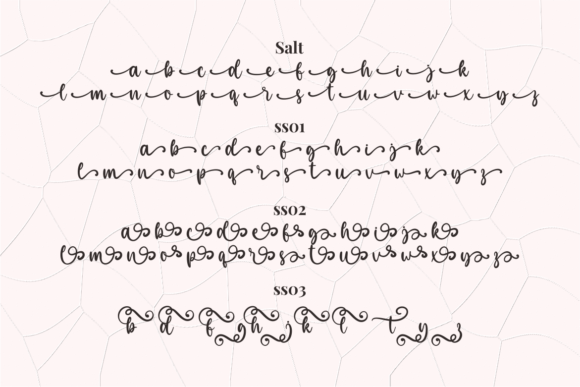 Salt
a b c d e f g h i j k
l m n o p q r s t u v w x y z
ss01
a b c d e f g h i j k
l m n o p q r s t u v w x y z
ss02
a b c d e f g h i j k
l m n o p q r s t u v w x y z
ss03
b d f g h j k l t y z